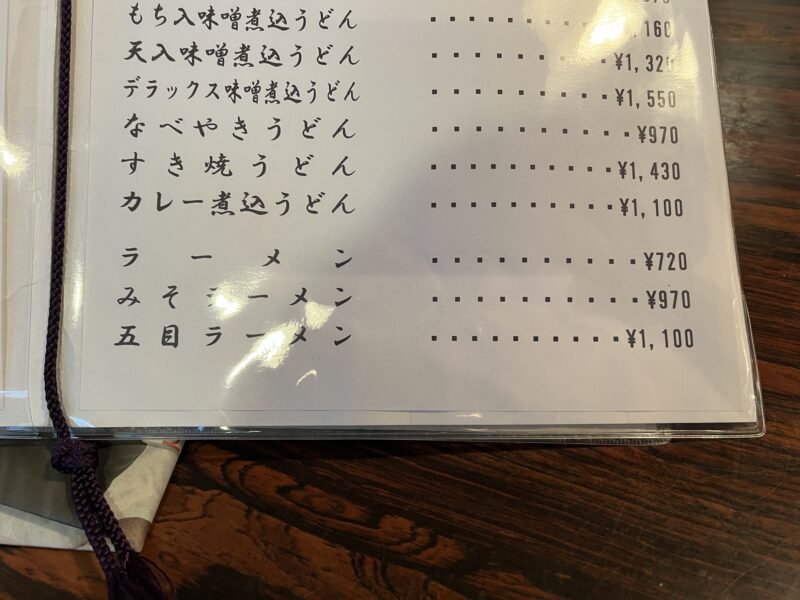 もち入味噌煮込うどん ・・・・・・・・・・160
天入味噌煮込うどん ・・・・・・・・・・¥1,320
デラックス味噌煮込うどん ・・・・・・・・・・¥1,550
なべやきうどん ・・・・・・・・・・・¥970
すき焼うどん ・・・・・・・・・・¥1,430
カレー煮込うどん ・・・・・・・・・・¥1,100
ラーメン ・・・・・・・・・・・¥720
みそラーメン ・・・・・・・・・・・¥970
五目ラーメン ・・・・・・・・・・¥1,100